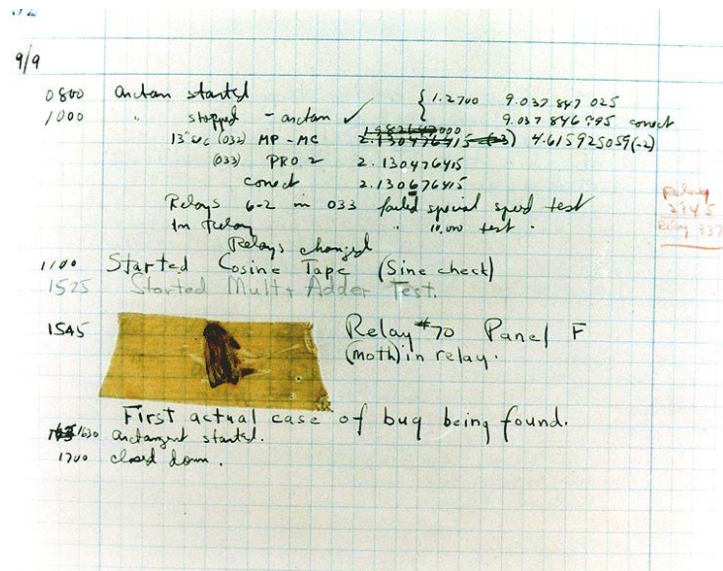 9/9
0800 antan started { 1.2700 9.037 847 025
1000 " stopped - antan ✓ 9.037 846 995 conect
13"uc (032) MP - MC 1.982647000 2.130476415 (-3) 4.615925059(-2)
(033) PRO 2 2.130476415
conect 2.130676415
Relays 6-2 in 033 failed special speed test
In Relay " 10.000 test .
Relays changed
1100 Started Cosine Tape (Sine check)
1525 Started Mult + Adder Test.
1545 Relay #70 Panel F
(moth) in relay.
First actual case of bug being found.
1630 antangent started.
1700 closed down .
Relay
2145
Relay 337